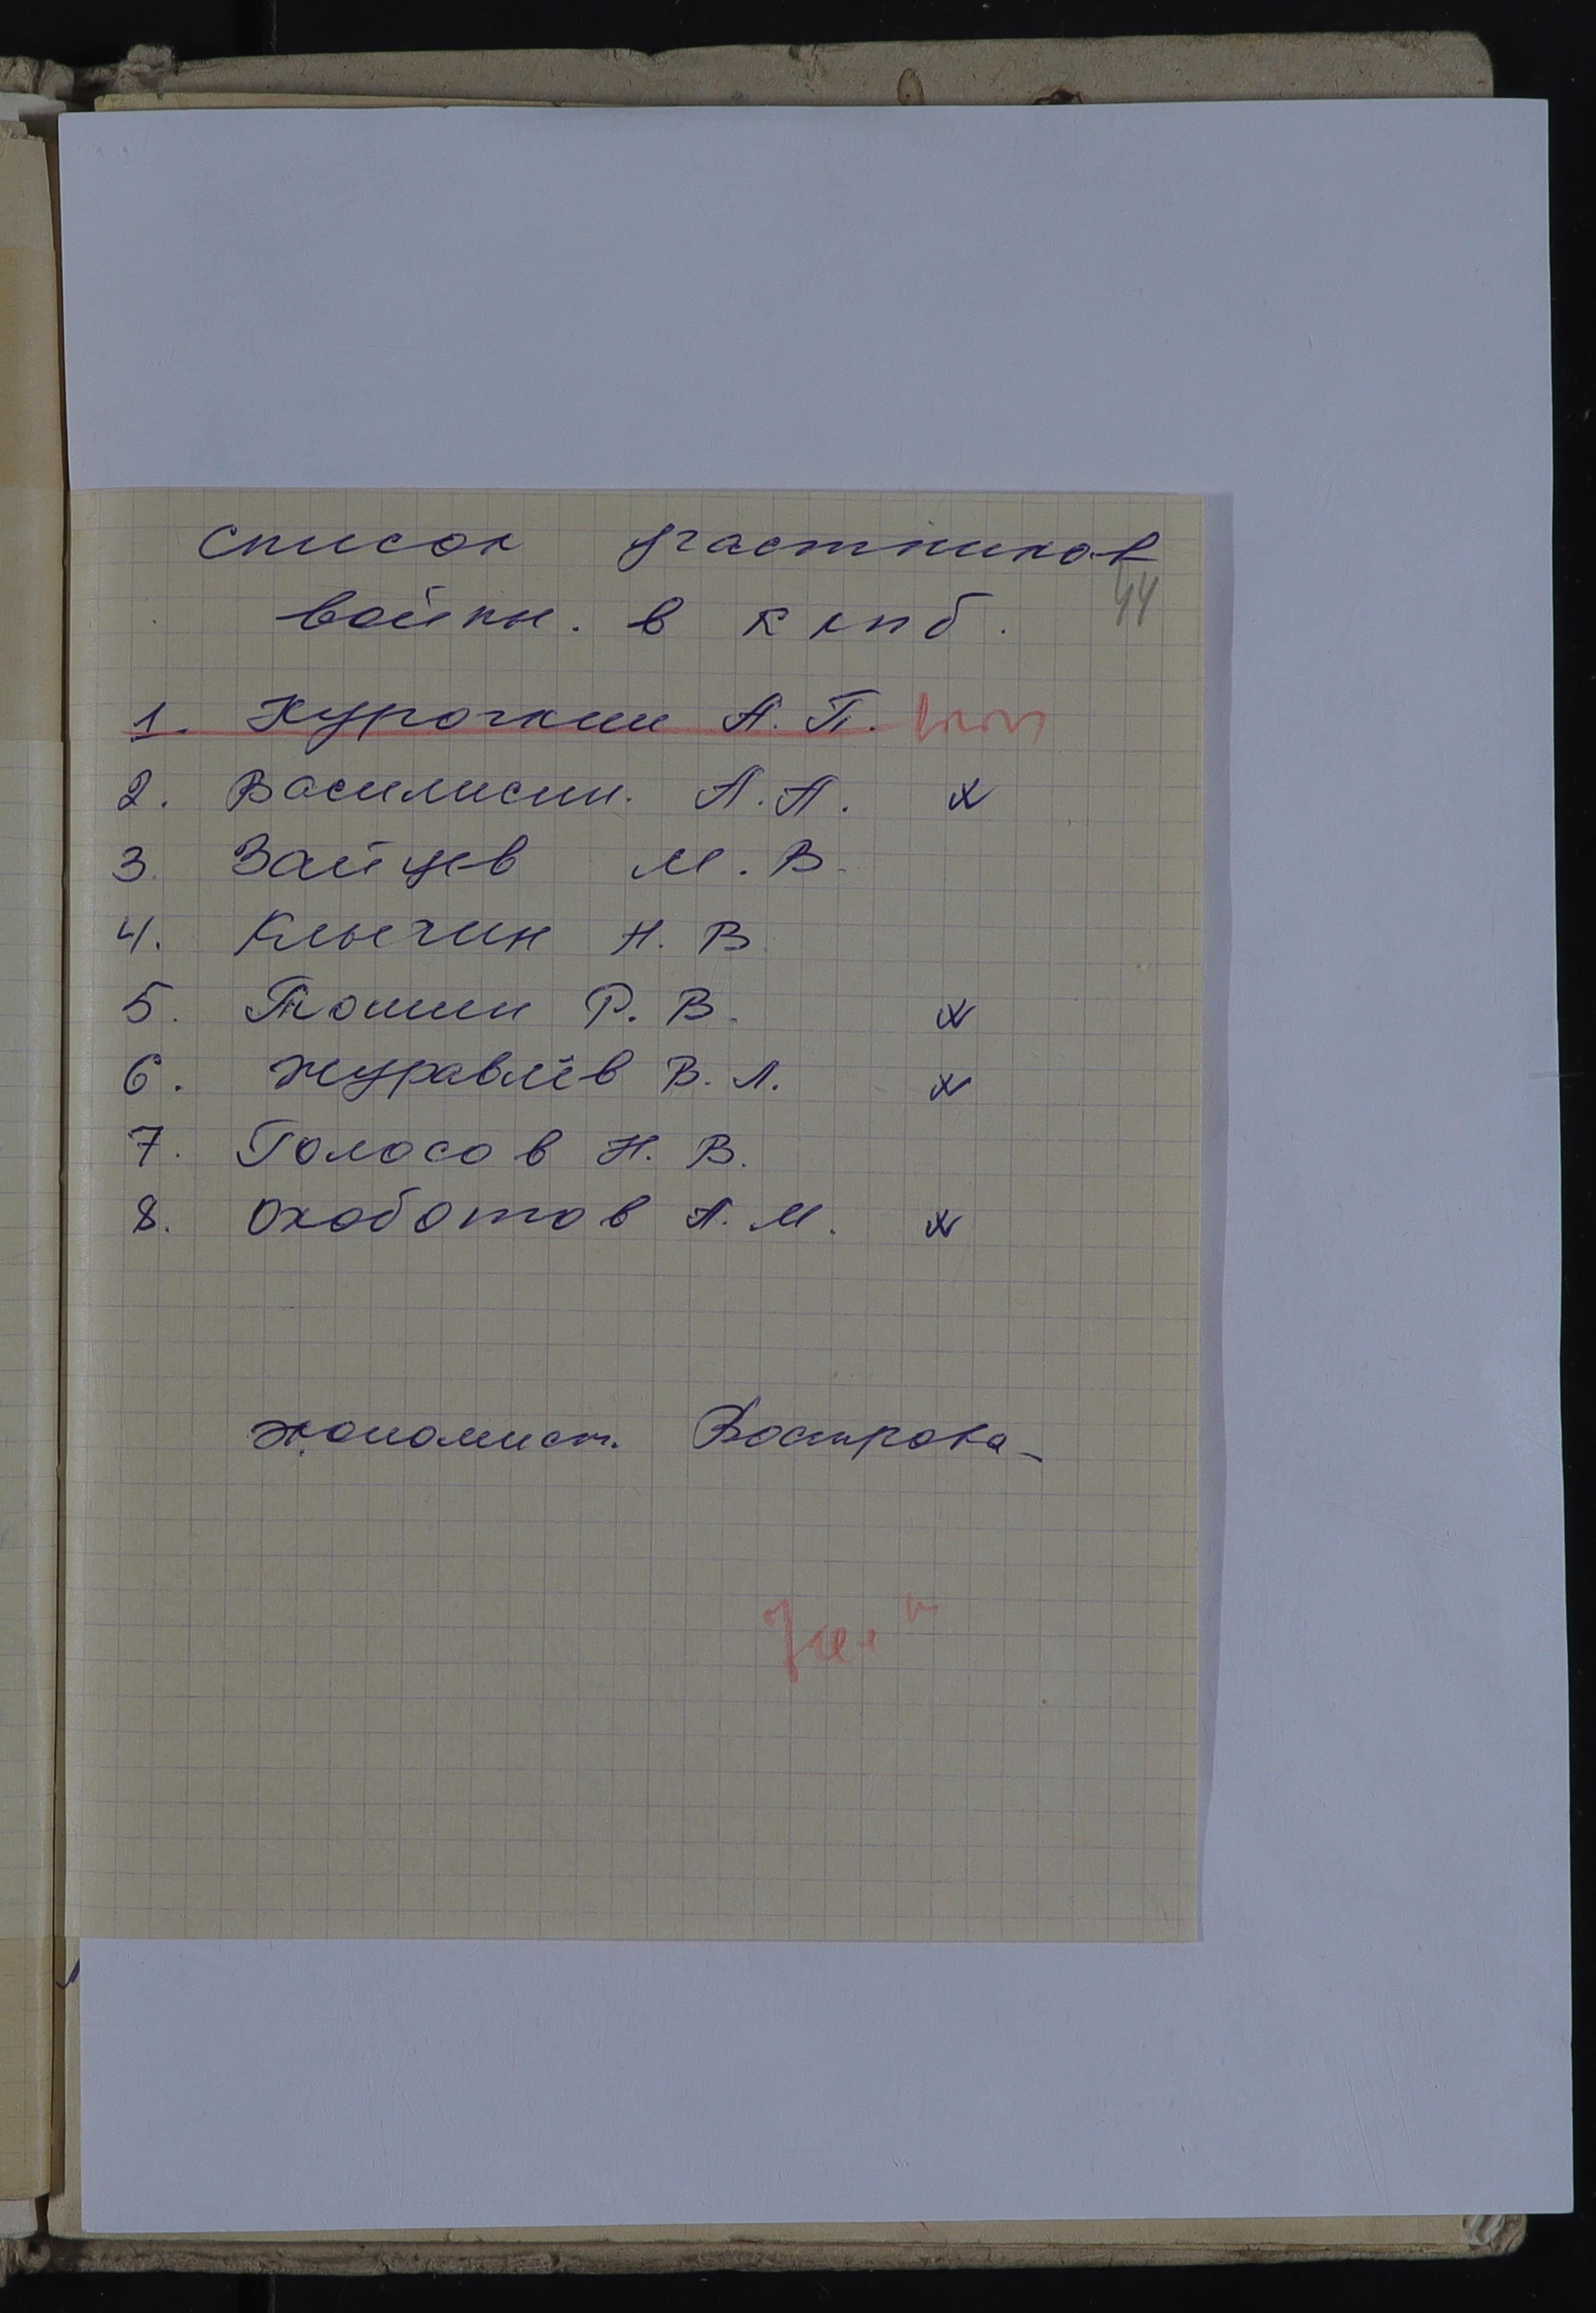 Список участников
44
войны. в ККПБ.
1. Курочкин А. П.
2. Василисин. А. А. x
3. Зайцев М. В.
4. Клычин Н. В.
5. Тюшин Р. В. x
6. Журавлёв В. Л. x
7. Голосов Н. В.
8. Охоботов А. М. x
экономист. Вострова